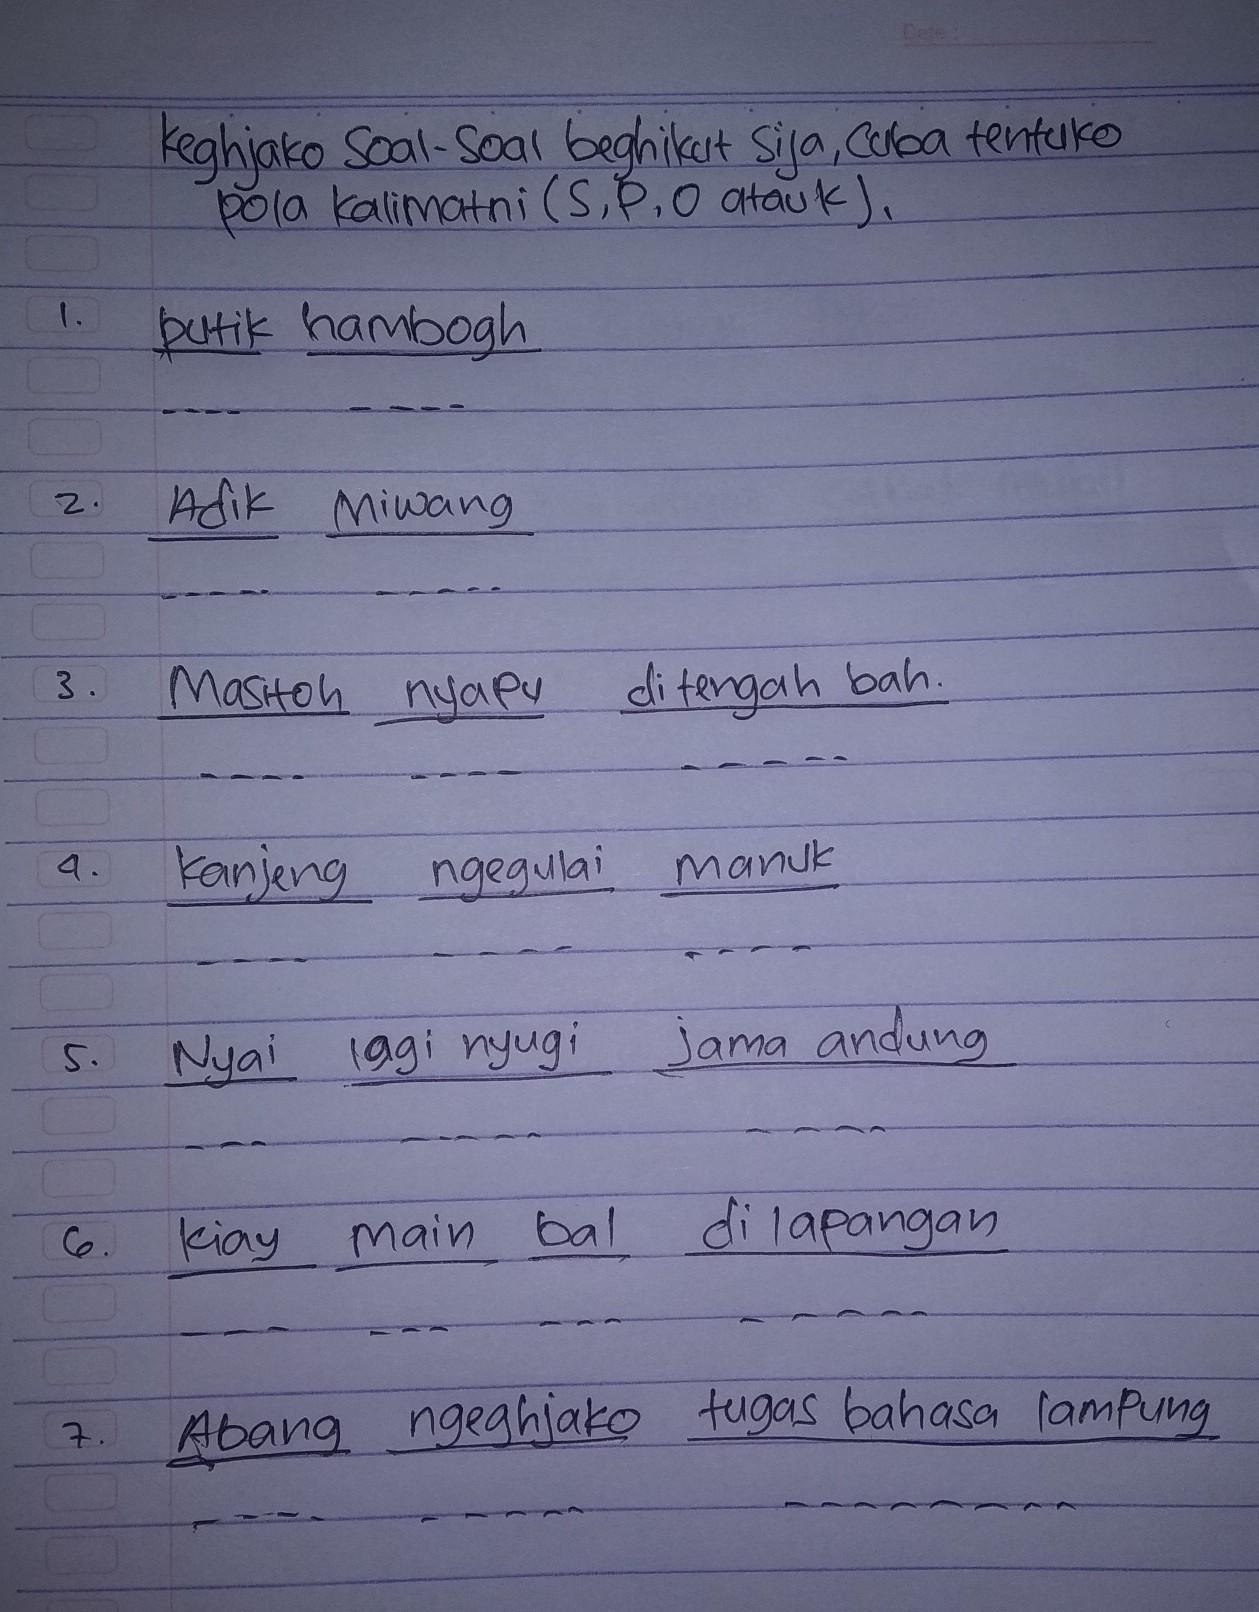 Date :
keghjako Soal-Soal beghikut Sija, Cuba tentuko
pola kalimatni (S, P, O atau k).
1. putik hambogh
2. Adik Miwang
3. Masitoh nyapu di tengah bah.
4. kanjeng ngegulai manuk
5. Nyai lagi nyugi jama andung
6. kiay main bal di lapangan
7. Abang ngeghjako tugas bahasa lampung